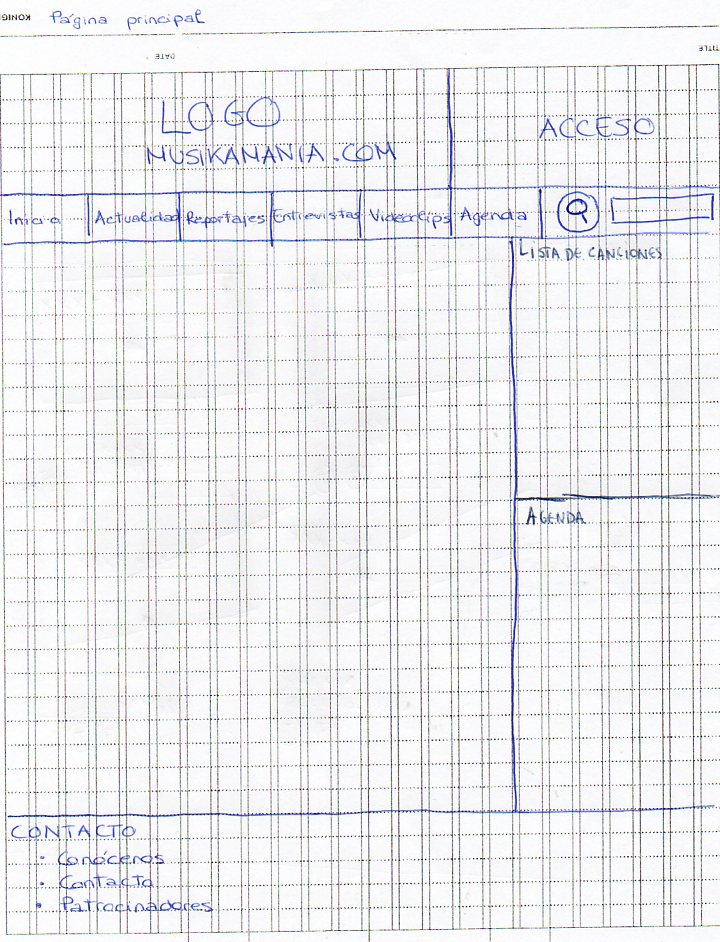 Página principal
DATE
TITLE
LOGO
MUSIKAMANIA.COM
ACCESO
Inicio
Actualidad
Reportajes
Entrevistas
Videoclips
Agenda
LISTA DE CANCIONES
AGENDA
CONTACTO
• Conócenos
• Contacto
• Patrocinadores